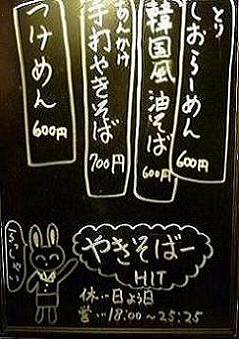 とり
しおらーめん
600円
韓国風油そば
600円
あんかけ
手打やきそば
700円
つけめん
600円
やきそばー
HIT
休・・日よう日
営・・18:00〜25:25